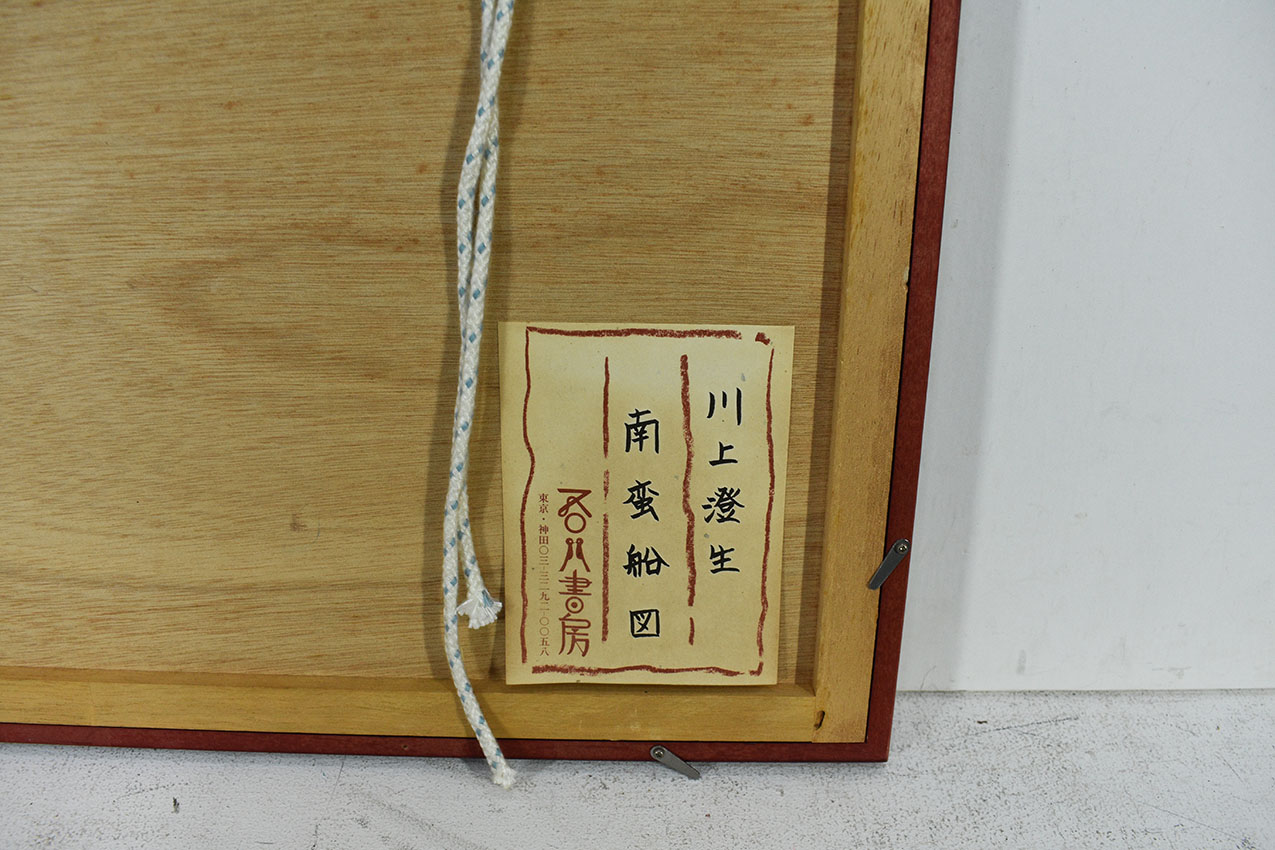 川上澄生
南蛮船図
吾八書房
東京・神田〇三-三二九二-〇〇五八